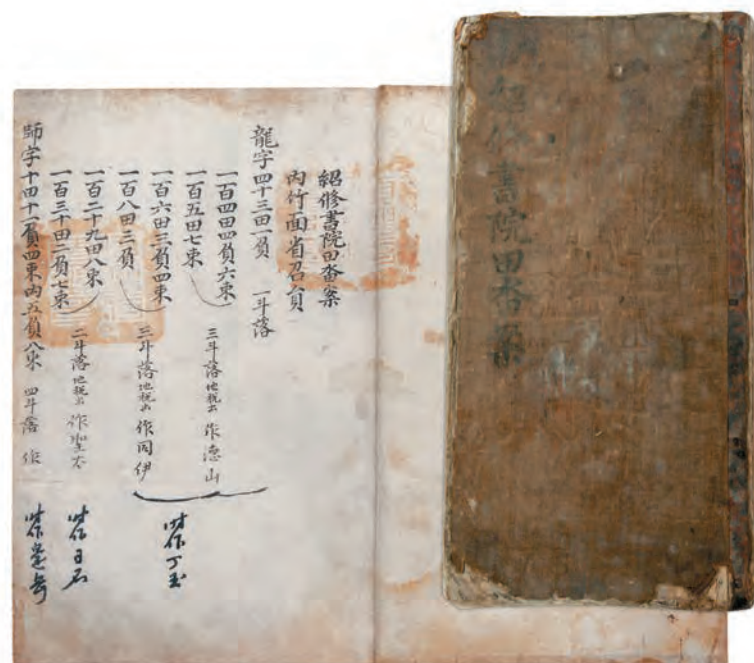 紹修書院田畓案
紹修書院田畓案
內竹面省召員
龍字四十三田一負 一斗落
一百四田四負六束
一百五田七束
三斗落 地稅出 作德山
一百六田三負四束
一百八田三負
三斗落 地稅出 作同伊
時作丁玉
一百二十九田八束
一百三十田二負七束
二斗落 地稅出 作聖
時作日石
師字十四十一負四束內五負八束 四斗落 作
時作